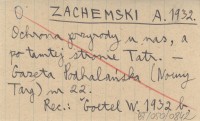 O. ZACHEMSKI A. 1932.
Ochrona przyrody u nas, a
po tamtej stronie Tatr. –
Gazeta Podhalańska (Nowy
Targ) nr 22.
Rec.: Goetel W. 1932 b